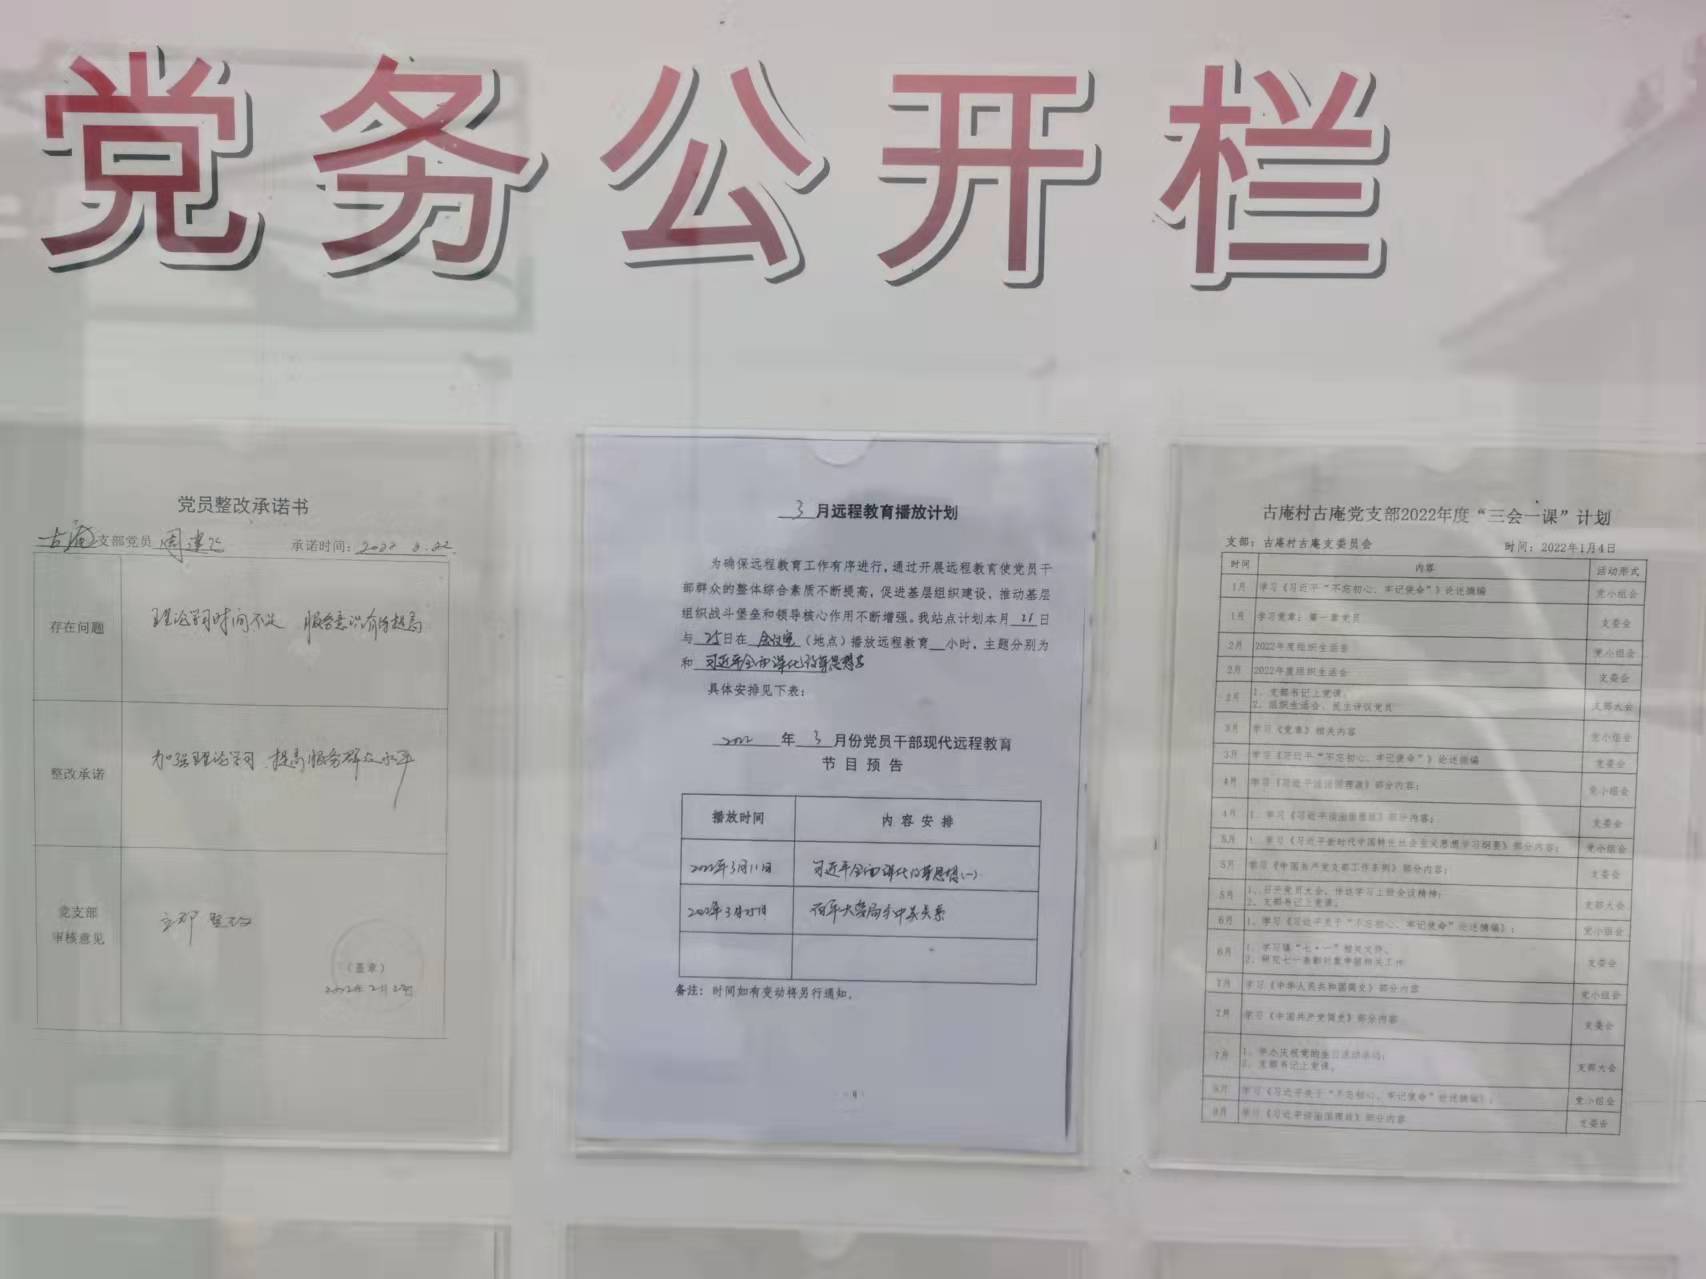 党务公开栏
党员整改承诺书
古庵支部党员 周建 承诺时间：2022
存在问题
理论学习时间不足 服务意识有待提高
整改承诺
加强理论学习 提高服务群众水平
党支部
审核意见
立即整改
（盖章）
2022年2月22日
3月远程教育播放计划
为确保远程教育工作有序进行，通过开展远程教育使党员干
部群众的整体综合素质不断提高，促进基层组织建设、推动基层
组织战斗堡垒和领导核心作用不断增强。我站点计划本月 日
与25日在 会议室（地点）播放远程教育 小时，主题分别为
和 习近平全面深化改革思想
具体安排见下表：
2022 年 3 月份党员干部现代远程教育
节目预告
播放时间 内容安排
2022年3月11日 习近平全面深化改革思想（一）
2022年3月25日 百年大变局与中美关系
备注：时间如有变动将另行通知。
古庵村古庵党支部2022年度“三会一课”计划
支部：古庵村古庵支委员会 时间：2022年1月4日
时间 内容 活动形式
1月 学习《习近平“不忘初心、牢记使命”》论述摘编 党小组会
1月 学习党章：第一章党员 支委会
2月 2022年度组织生活会 党小组会
2月 2022年度组织生活会 支委会
2月 1、支部书记上党课；
2、组织生活会、民主评议党员 支部大会
3月 学习《党章》相关内容 党小组会
3月 学习《习近平“不忘初心、牢记使命”》论述摘编 支委会
4月 学习《习近平谈治国理政》部分内容； 党小组会
4月 1、学习《习近平谈治国理政》部分内容； 支委会
5月 1、学习《习近平新时代中国特色社会主义思想学习纲要》部分内容； 党小组会
5月 学习《中国共产党支部工作条例》部分内容； 支委会
5月 1、召开党员大会，传达学习上级会议精神；
2、支部书记上党课。 支部大会
6月 1、学习《习近平关于“不忘初心、牢记使命”论述摘编》； 党小组会
6月 1、学习镇“七·一”相关文件。
2、研究七一表彰 相关工作 支委会
7月 学习《中华人民共和国简史》部分内容 党小组会
7月 学习《中国共产党简史》部分内容 支委会
7月 1、举办庆祝党的生日活动
2、支部书记上党课。 支部大会
8月 学习《习近平关于“不忘初心、牢记使命”论述摘编》； 党小组会
8月 学习《习近平谈治国理政》部分内容 支委会